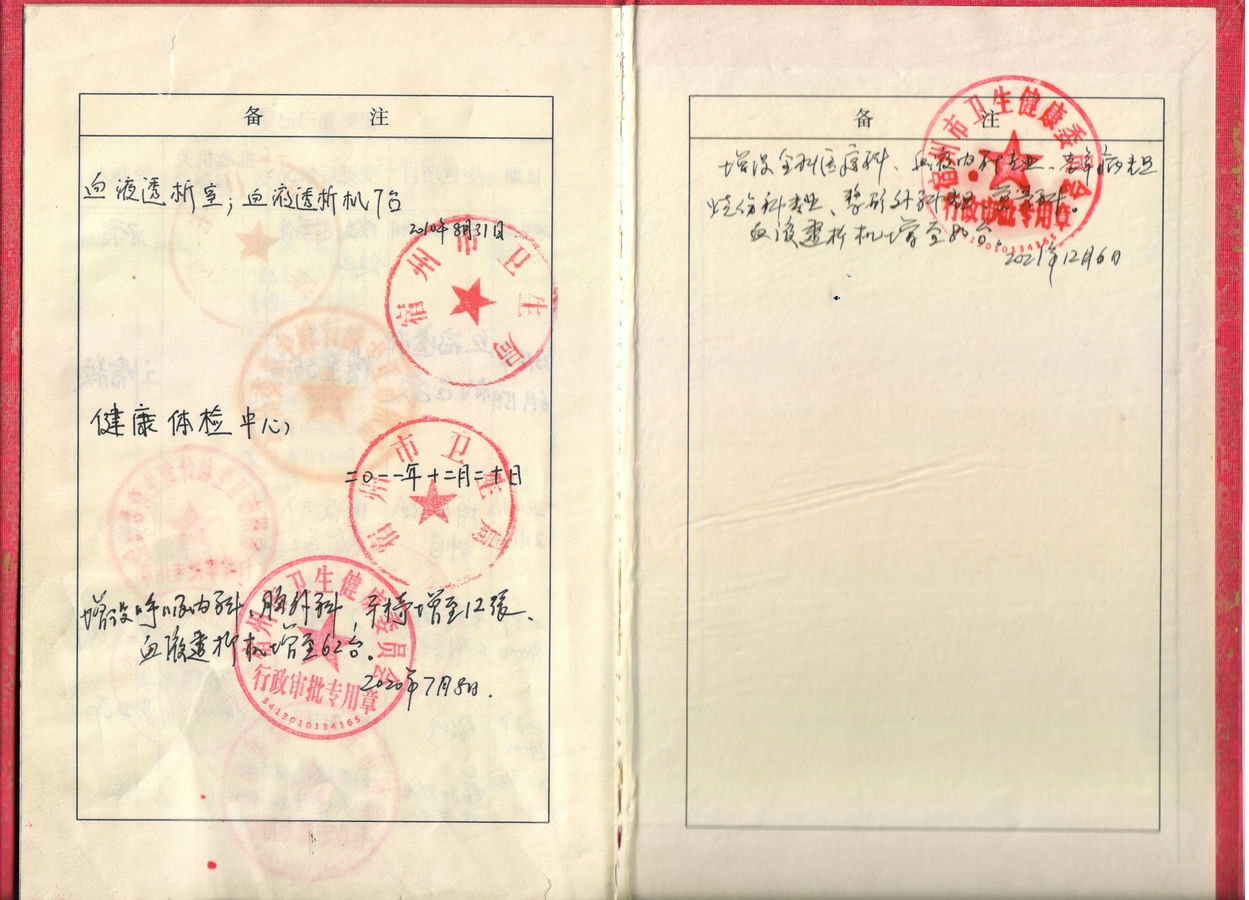 备 注
血液透析室；血液透析机7台
2010年8月31日
宿州市卫生局
健康体检中心
二〇一一年十二月二十日
宿州市卫生局
增设呼吸内科、胸外科，牙椅增至12张、
血液透析机增至62台。
2020年7月8日.
宿州市卫生健康委员会
行政审批专用章
3413010134165
备 注
增设全科医疗科、血液内科专业、老年病专业
烧伤科专业、整形外科专业、
血液透析机增至80台。
2021年12月6日
宿州市卫生健康委员会
行政审批专用章